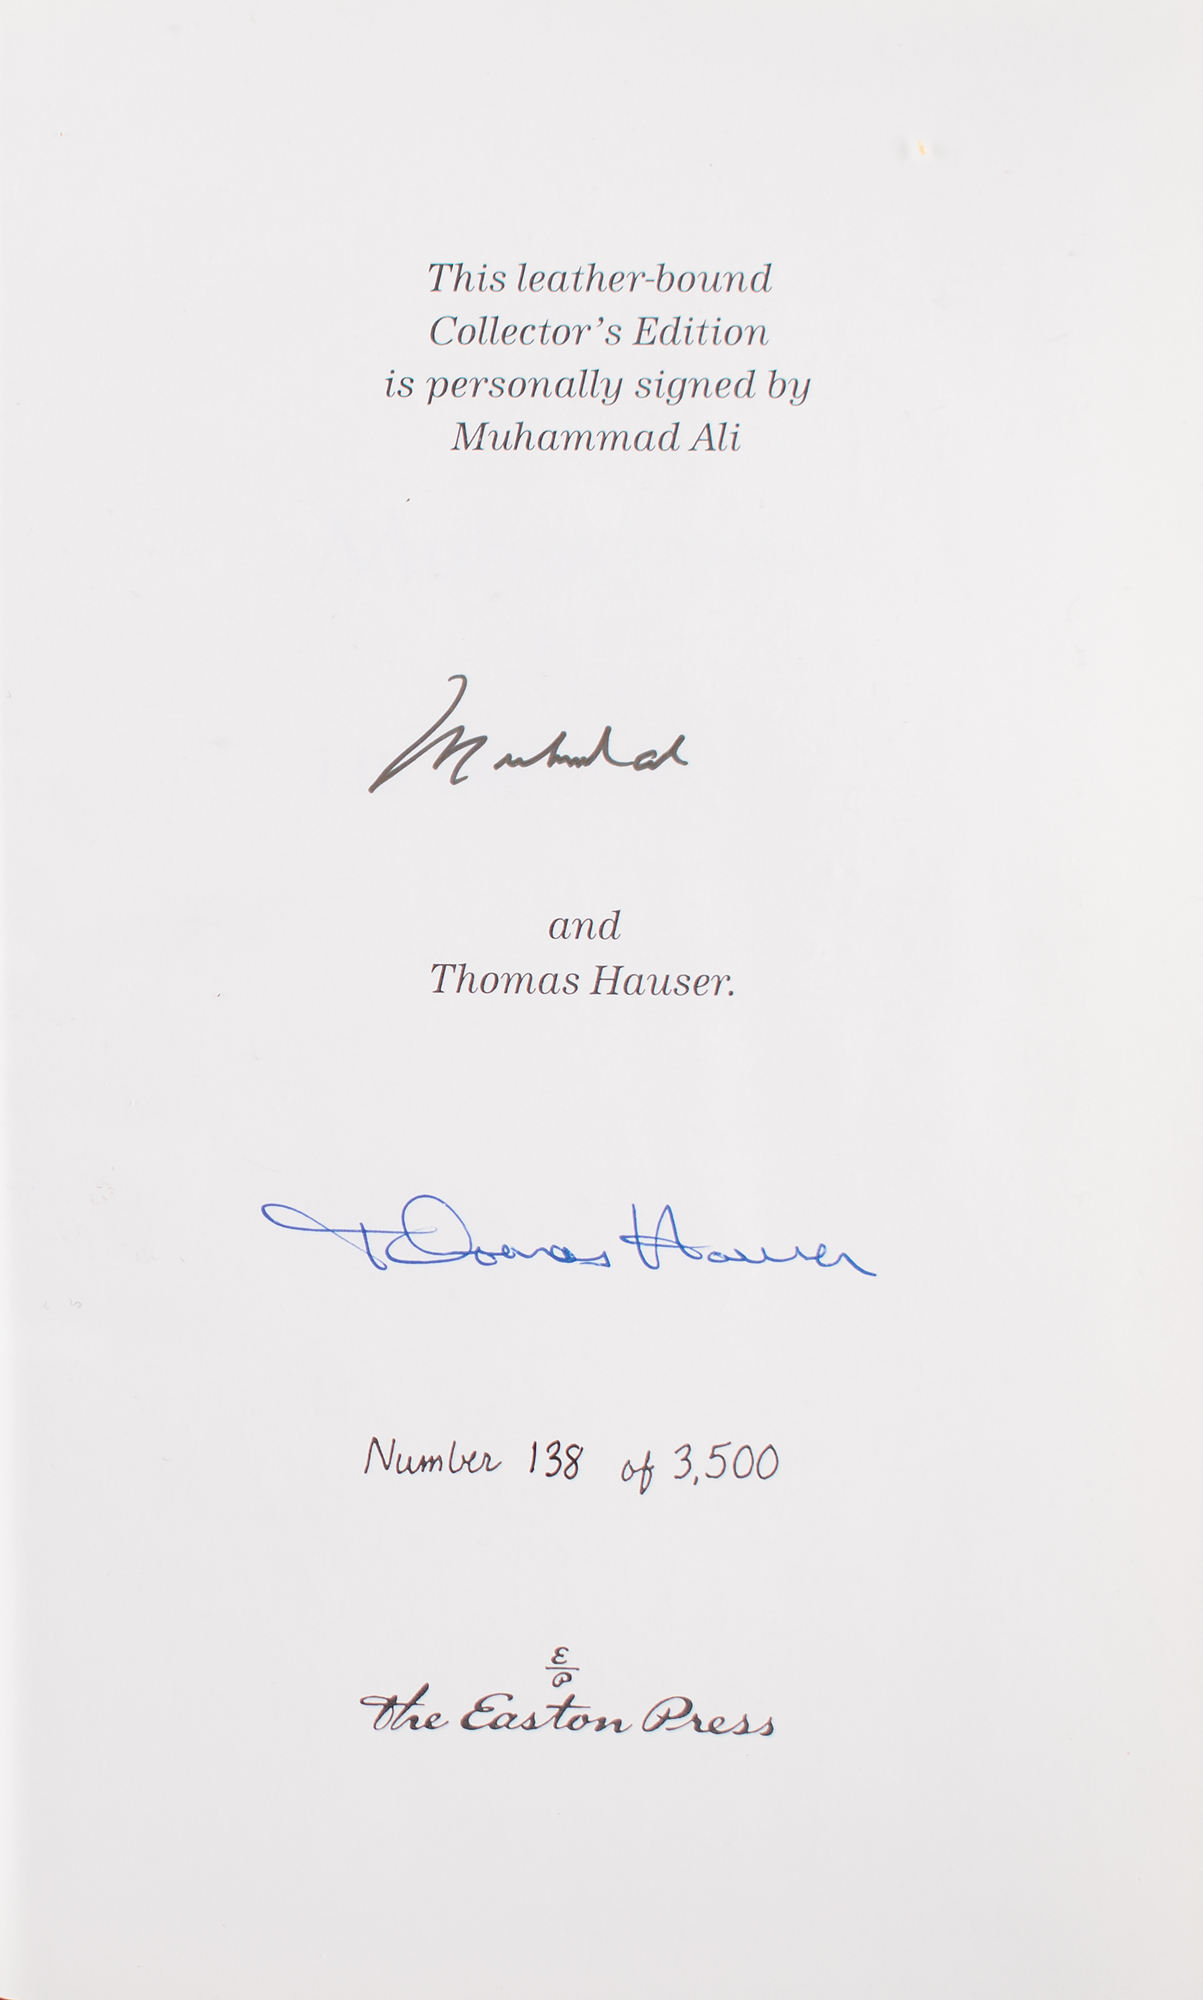 This leather-bound
Collector's Edition
is personally signed by
Muhammad Ali
Muhammad
and
Thomas Hauser.
Thomas Hauser
Number 138 of 3,500
E
P
The Easton Press